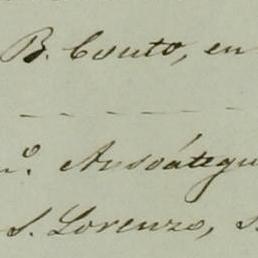 B. Couto, en
Ansoátegu
S. Lorenzo,